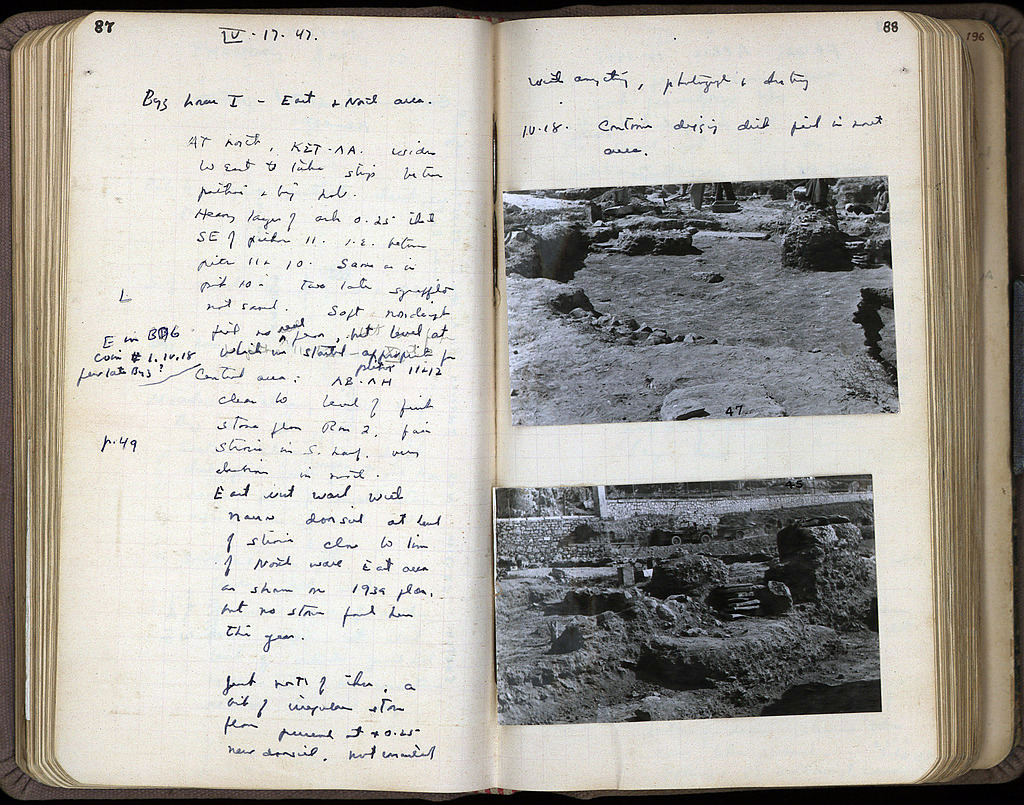 87
IV-17-47.
Byz house I - East & North area.
At north, KZ-ΛΑ. widen
to east to take strip between
pithoi & big hole.
Heavy layer of ash 0.25 thick
SE of pithos 11. i.e. between
pithoi 11 & 10. Same as in
pit 10- two late sgraffito
not sand. Soft nondescript
E in BΘ6
coin # 1.IV.18
fairly late Byz?
fill no real floor, but level at
which we started appropriate for
pithoi 11+12
Central area: ΛB-ΛH
clear to level of
stone floor Rm 2. fair
stones in S. half. very
in north.
East - west wall with
at level
of stones close to line
of North wall East area
as shown on 1939 plan,
but no stones found here
this year.
p.49
Just north of this, a
bit of irregular stone
floor preserved at +0.25
new . not connected
88
with anything, photograph & destroy
IV-18. Continue digging dark fill in north
area.
47
48
196